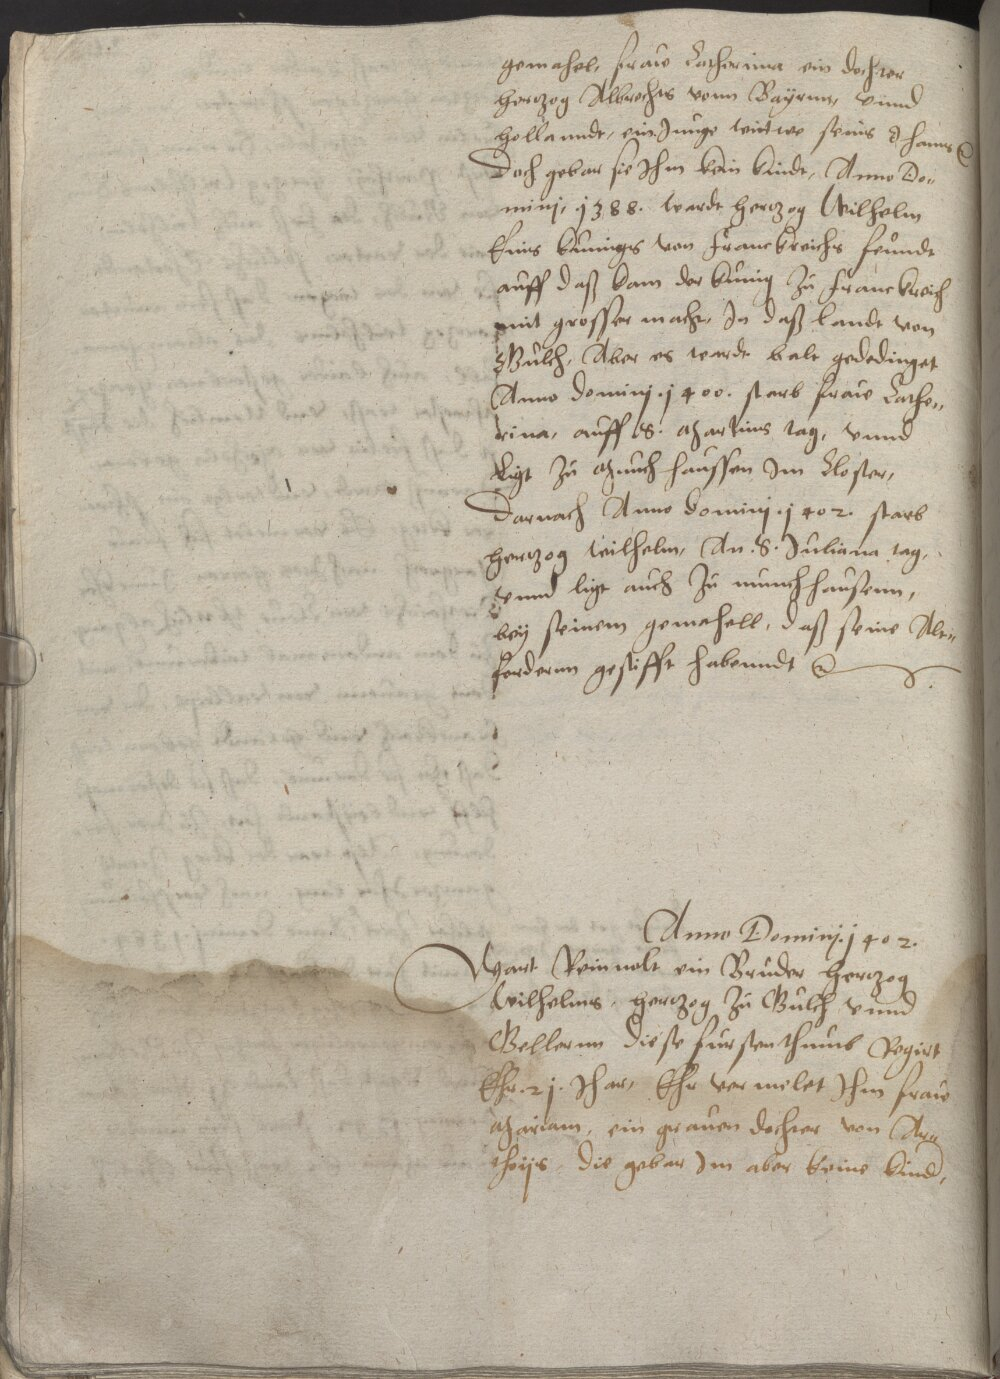 gemahel, frawe Catherina ein dochter
hertzog Albrechts vonn Bayrnn, vnnd
hollanndt, ein Junge witwe seins Ohams
Doch gebar sie Ihm kein kindt, Anno Do-
minj, 1388. wardt hertzog Wilhelm
des kunigs von Franckreichs feundt
auff daß kam der kunig zu Franckreich
mit grosser macht, In daß landt von
Gulch, Aber es wardt balt gededinget
Anno dominj. 1400. starb frawe Cathe-
rina, auff S. Martins tag, vnnd
ligt zu Munchhaussen Im Closter,
Darnach Anno dominj. 1402. starb
hertzog wilhelm, An. S. Juliana tag,
vnnd ligt auch zu munchhausenn,
bey seinem gemahell, daß seine Alt-
fordernn gestifft habenndt
Anno Dominj. 1402.
Wart Reinnolt ein Bruder hertzog
Wilhelms, hertzog zu Gulch vnnd
Gellernn diese furstenthumb Regirt
Ehr. 21. Jhar, Ehr vermelet Ihm frawe
Mariam, ein grauen dochter von Ar-
thoijs, die gebar Im aber keine kind,